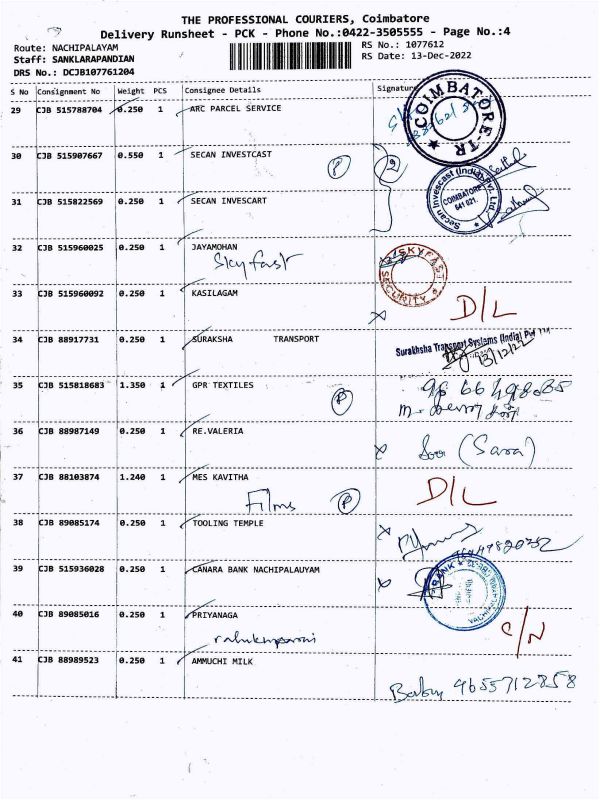 THE PROFESSIONAL COURIERS, Coimbatore
Delivery Runsheet - PCK - Phone No.:0422-3505555 - Page No.:4
Route: NACHIPALAYAM
RS No.: 1077612
Staff: SANKLARAPANDIAN
RS Date: 13-Dec-2022
DRS No.: DCJB107761204
S No Consignment No Weight PCS Consignee Details Signature
29 CJB 515788704 0.250 1 ARC PARCEL SERVICE
COIMBATORE-TR
30 CJB 515907667 0.550 1 SECAN INVESTCAST
P 2
Secan Invescast (India) Pvt. Ltd.
COIMBATORE
641 021.
31 CJB 515822569 0.250 1 SECAN INVESCART
32 CJB 515960025 0.250 1 JAYAMOHAN
Skyfast
SKYFAST
SECURITY
33 CJB 515960092 0.250 1 KASILAGAM
D/L
34 CJB 88917731 0.250 1 SURAKSHA TRANSPORT
Surakhsha Transport Systems (India) Pvt
13/12/22
35 CJB 515818683 1.350 1 GPR TEXTILES
P
36 CJB 88987149 0.250 1 RE.VALERIA
(Sara)
37 CJB 88103874 1.240 1 MES KAVITHA
Films P D/L
38 CJB 89085174 0.250 1 TOOLING TEMPLE
39 CJB 515936028 0.250 1 CANARA BANK NACHIPALAUYAM
BANK
40 CJB 89085016 0.250 1 PRIYANAGA
C/N
41 CJB 88989523 0.250 1 AMMUCHI MILK
Babu 9655712858